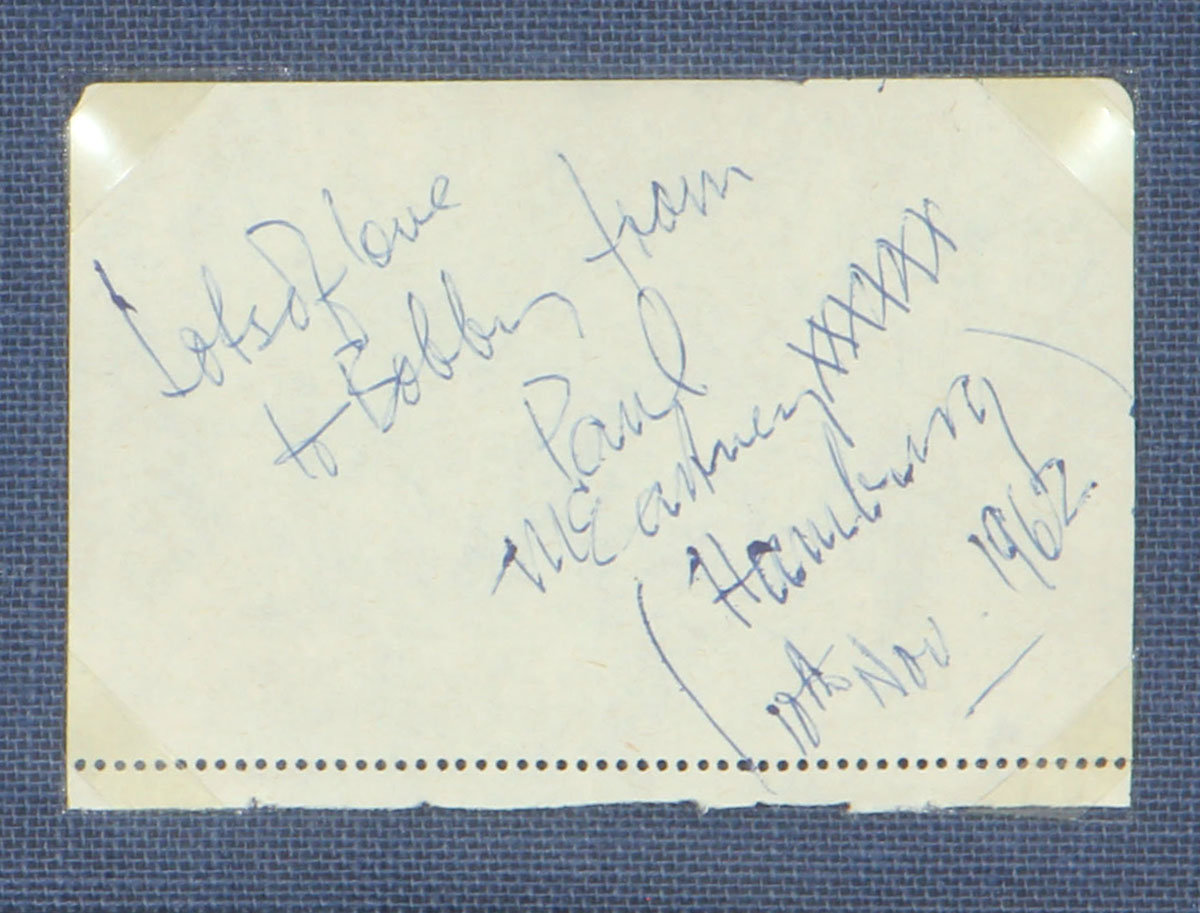 Lots of love
to Bobby from
Paul
McCartney XXXXX
(Hamburg)
10th Nov. 1962